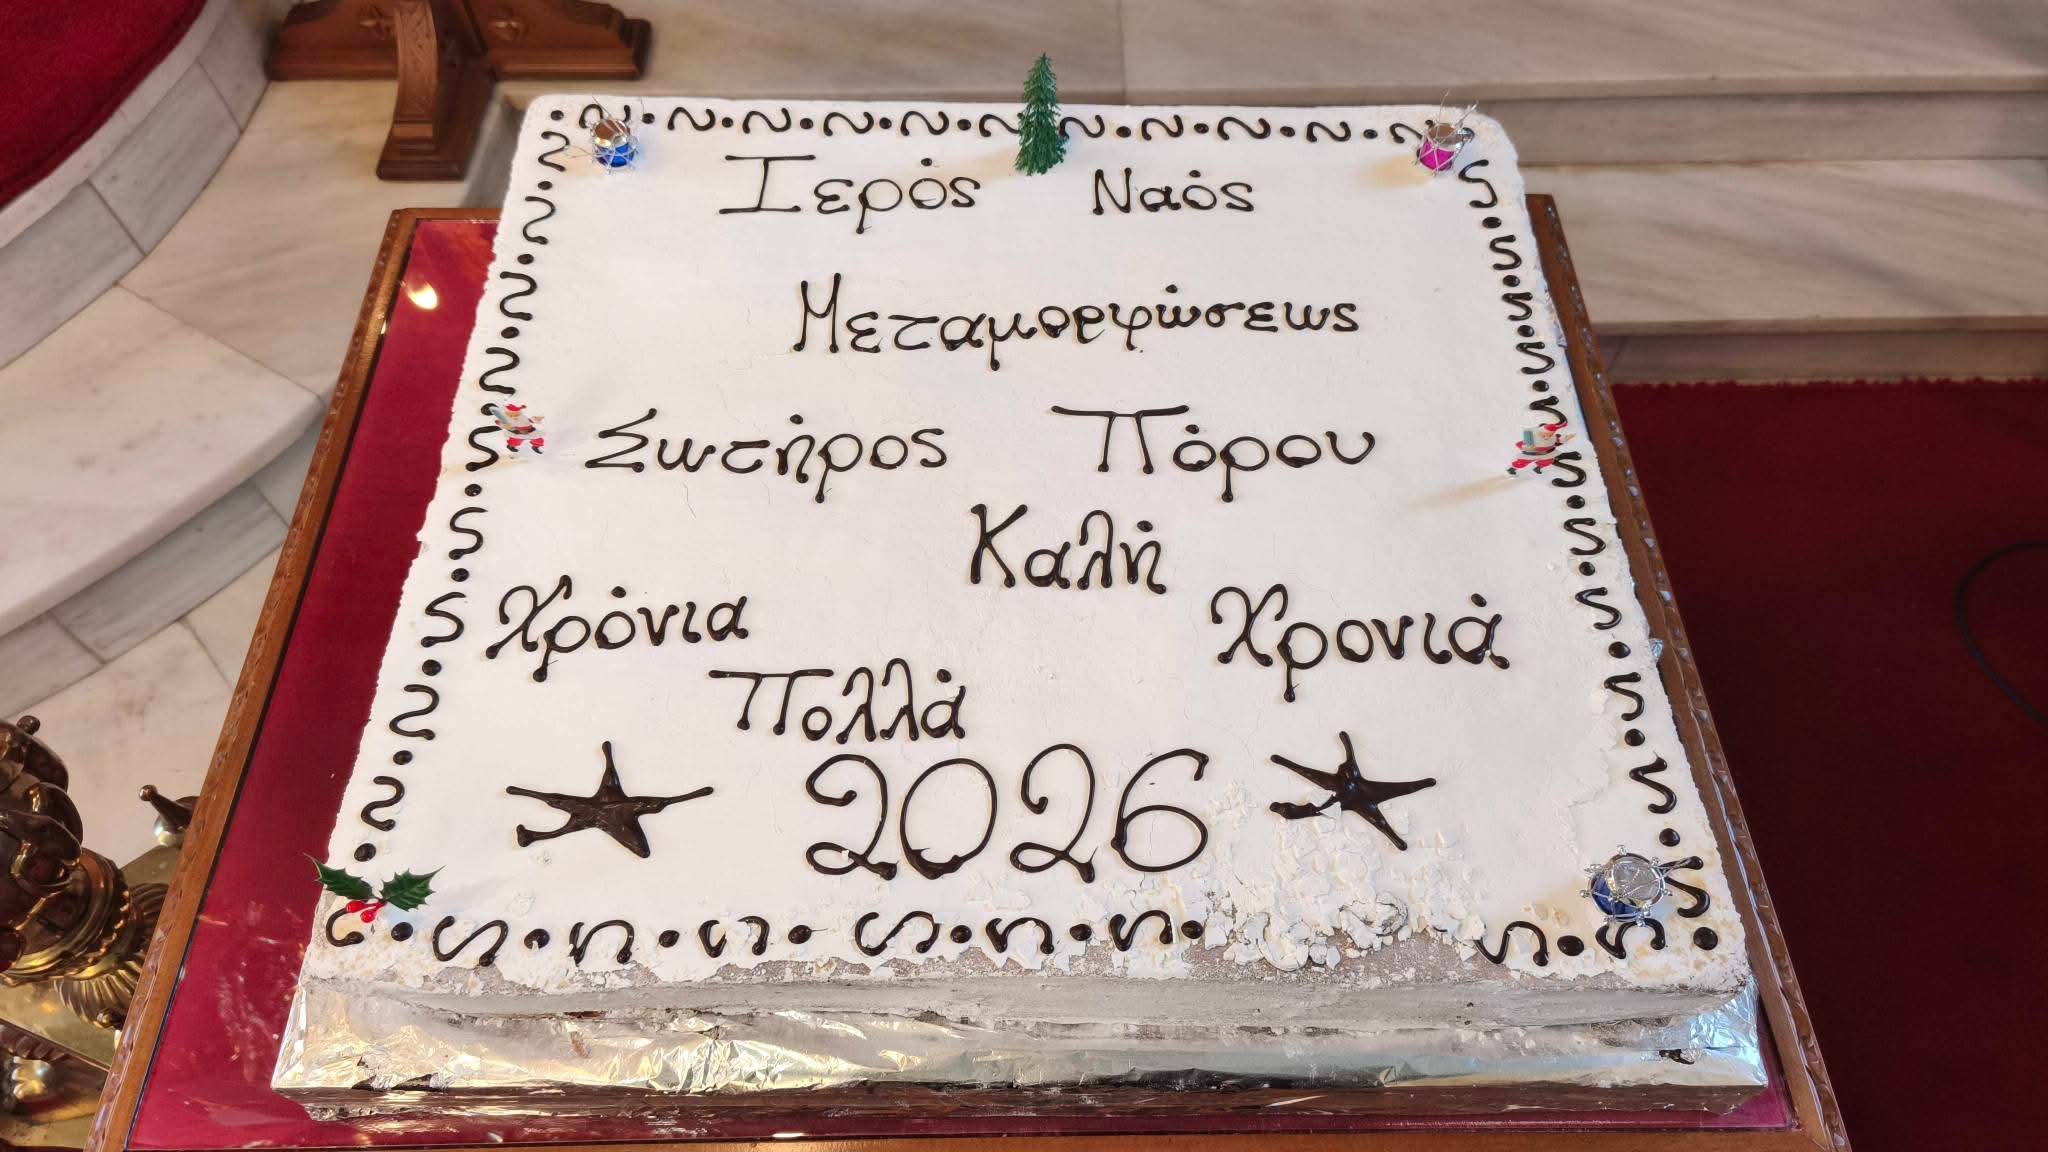 Ιερός Ναός
Μεταμορφώσεως
Σωτήρος Πόρου
Χρόνια
Πολλά
Καλή
Χρονιά
2026